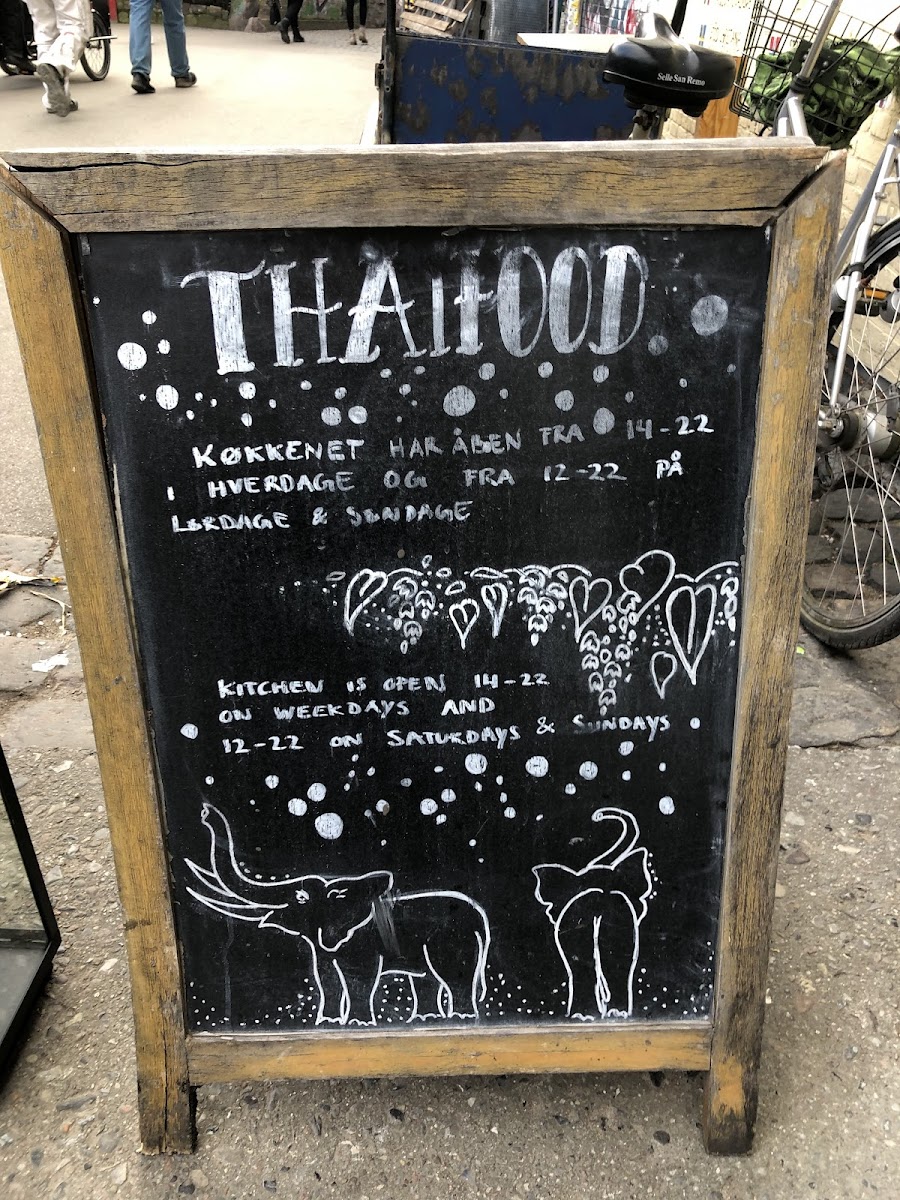 Selle San Remo
THAIFOOD
KØKKENET HAR ÅBEN FRA 14-22
I HVERDAGE OG FRA 12-22 PÅ
LØRDAGE & SØNDAGE
KITCHEN IS OPEN 14-22
ON WEEKDAYS AND
12-22 ON SATURDAYS & SUNDAYS